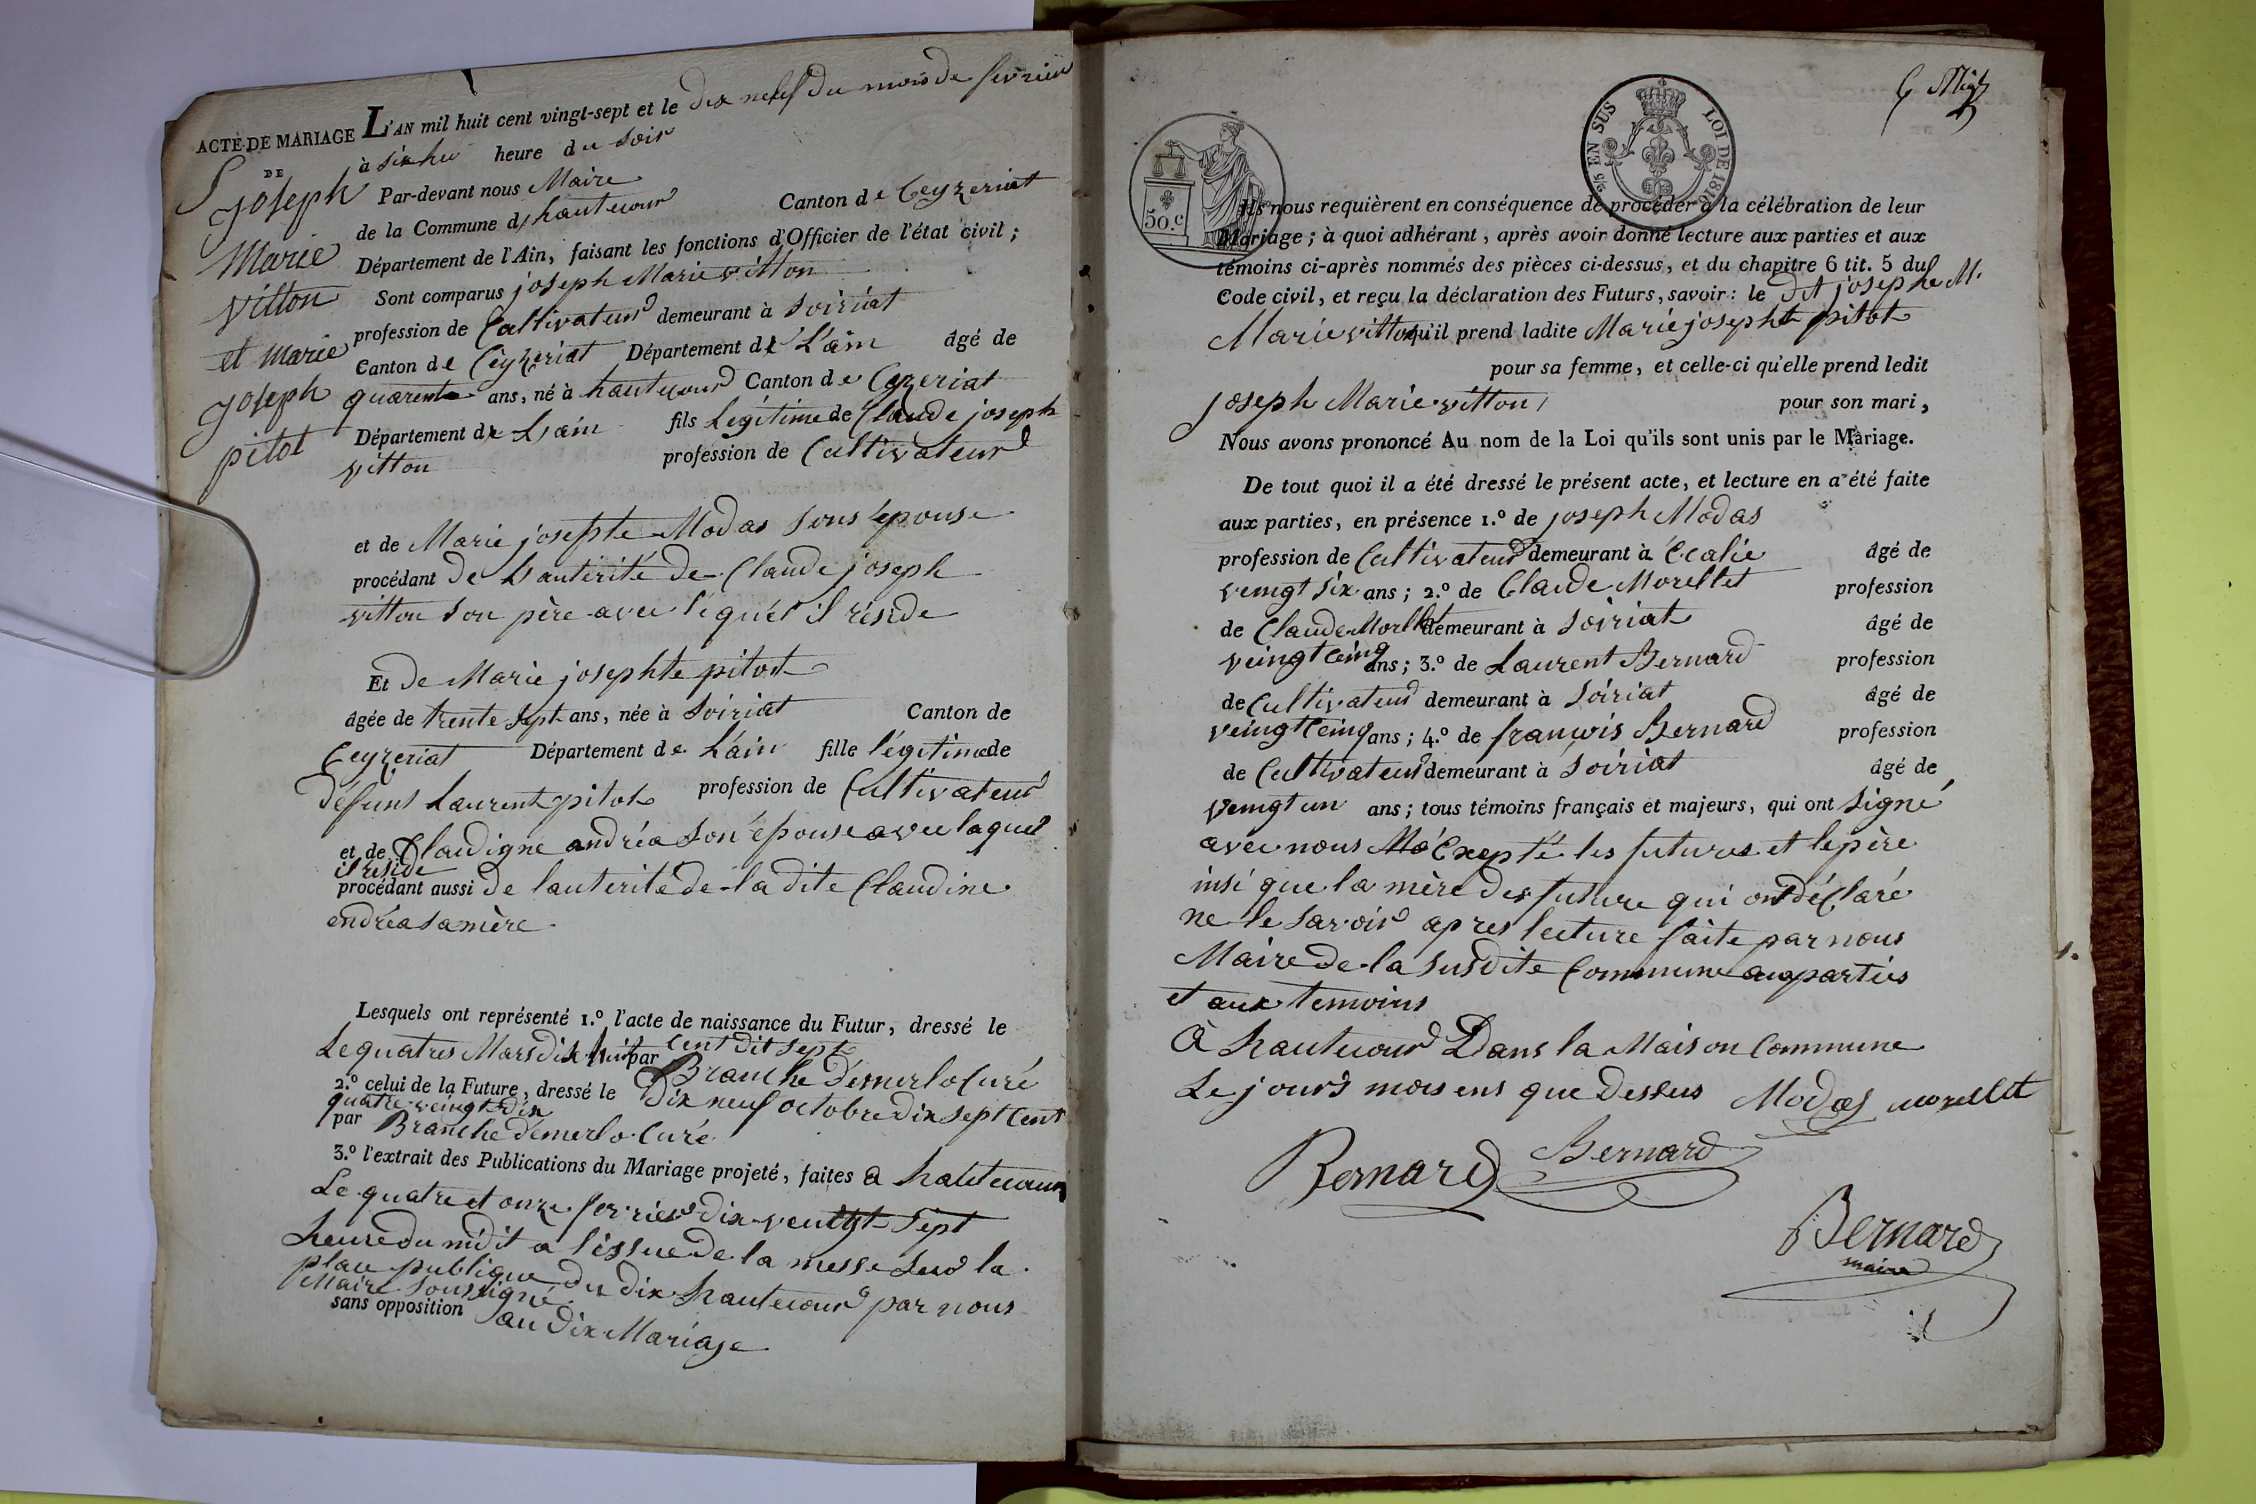 ACTE DE MARIAGE L'AN mil huit cent vingt-sept et le dix neuf du mois de fevrier
DE
Joseph
Marie
vitton
et Marie
Joseph
pitot
à six heu heure du soir
Par-devant nous Maire
de la Commune d' hautecour Canton de Ceyzeriat
Département de l'Ain, faisant les fonctions d'Officier de l'état civil ;
Sont comparus joseph Marie vitton
profession de Cultivateur demeurant à Soiriat
Canton de Ceyzeriat Département de L'ain âgé de
quarente ans, né à hautecour Canton de Cezeriat
Département de L'ain fils Légitime de Claude joseph
vitton profession de Cultivateur
et de Marie josephte Modas sons épouse
procédant De Lauterité de Claude joseph
vitton son père avec léquel il réside
Et De Marie josephte pitot
âgée de trente sept ans, née à Soiriat Canton de
Ceyzeriat Département de L'ain fille légitime de
défunt Laurent pitot profession de Cultivateur
et de Claudigne andréa son épouse avec laquel
il reside
procédant aussi de lauterité de la dite Claudine
endréa sa mère
Lesquels ont représenté 1.º l'acte de naissance du Futur, dressé le
Le quatres Mars dix huit cent dit sept
par Branche Démerlo Curé
2.º celui de la Future, dressé le Dix neuf octobre dix sept Cent
quatre veingt dix
par Branche Démerlo Curé
3.º l'extrait des Publications du Mariage projeté, faites a hautecour
Le quatre et onze fevrier dix veingt sept
heure du midit a l'issue de la messe sur la
place publique du dix hautecour par nous
Maire soussigné
sans opposition au dix Mariage
50.c
2/5 EN SUS LOI DE 1816
Ils nous requièrent en conséquence de procéder à la célébration de leur
Mariage ; à quoi adhérant, après avoir donné lecture aux parties et aux
témoins ci-après nommés des pièces ci-dessus, et du chapitre 6 tit. 5 du
Code civil, et reçu la déclaration des Futurs, savoir : le dit joseph M.
Marie vitton qu'il prend ladite Marie josepht pitot
pour sa femme, et celle-ci qu'elle prend ledit
joseph Marie vitton pour son mari,
Nous avons prononcé Au nom de la Loi qu'ils sont unis par le Mariage.
De tout quoi il a été dressé le présent acte, et lecture en a été faite
aux parties, en présence 1.º de joseph Modas
profession de Cultivateur demeurant à âgé de
veingt six ans ; 2.º de Claude Morellet profession
de Claude Morllet demeurant à Soiriat âgé de
veingt cinq ans ; 3.º de Laurent Bernard profession
de Cultivateur demeurant à Soiriat âgé de
veingt cinq ans ; 4.º de francois Bernard profession
de Cultivateur demeurant à Soiriat âgé de
veingt un ans ; tous témoins français et majeurs, qui ont signé
avec nous Exepté les futures et le père
insi que la mère des future qui ont déclaré
ne le savoir apres lecture faite par nous
Maire de la susdite Commune aux parties
et aux temoins
à hautecour Dans la Maison Commune
Le jours mois ens que Dessus Modas morellet
Bernard Bernard
Bernard
maire